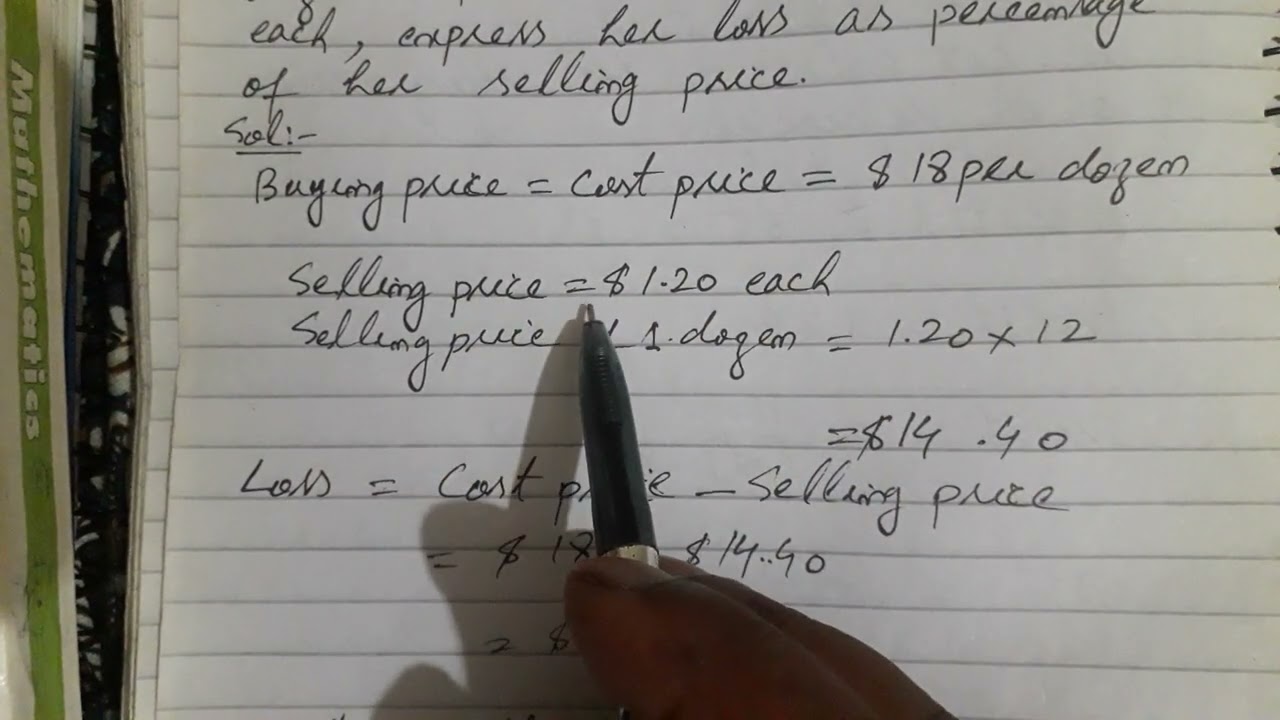 each, express her loss as percentage
of her selling price.
Sol:-
Buying price = Cost price = $ 18 per dozen
Selling price = $ 1.20 each
Selling price 1. dozen = 1.20 × 12
= $ 14 .40
Loss = Cost price – Selling price
= $ 18 $ 14..40
= $
Mathematics